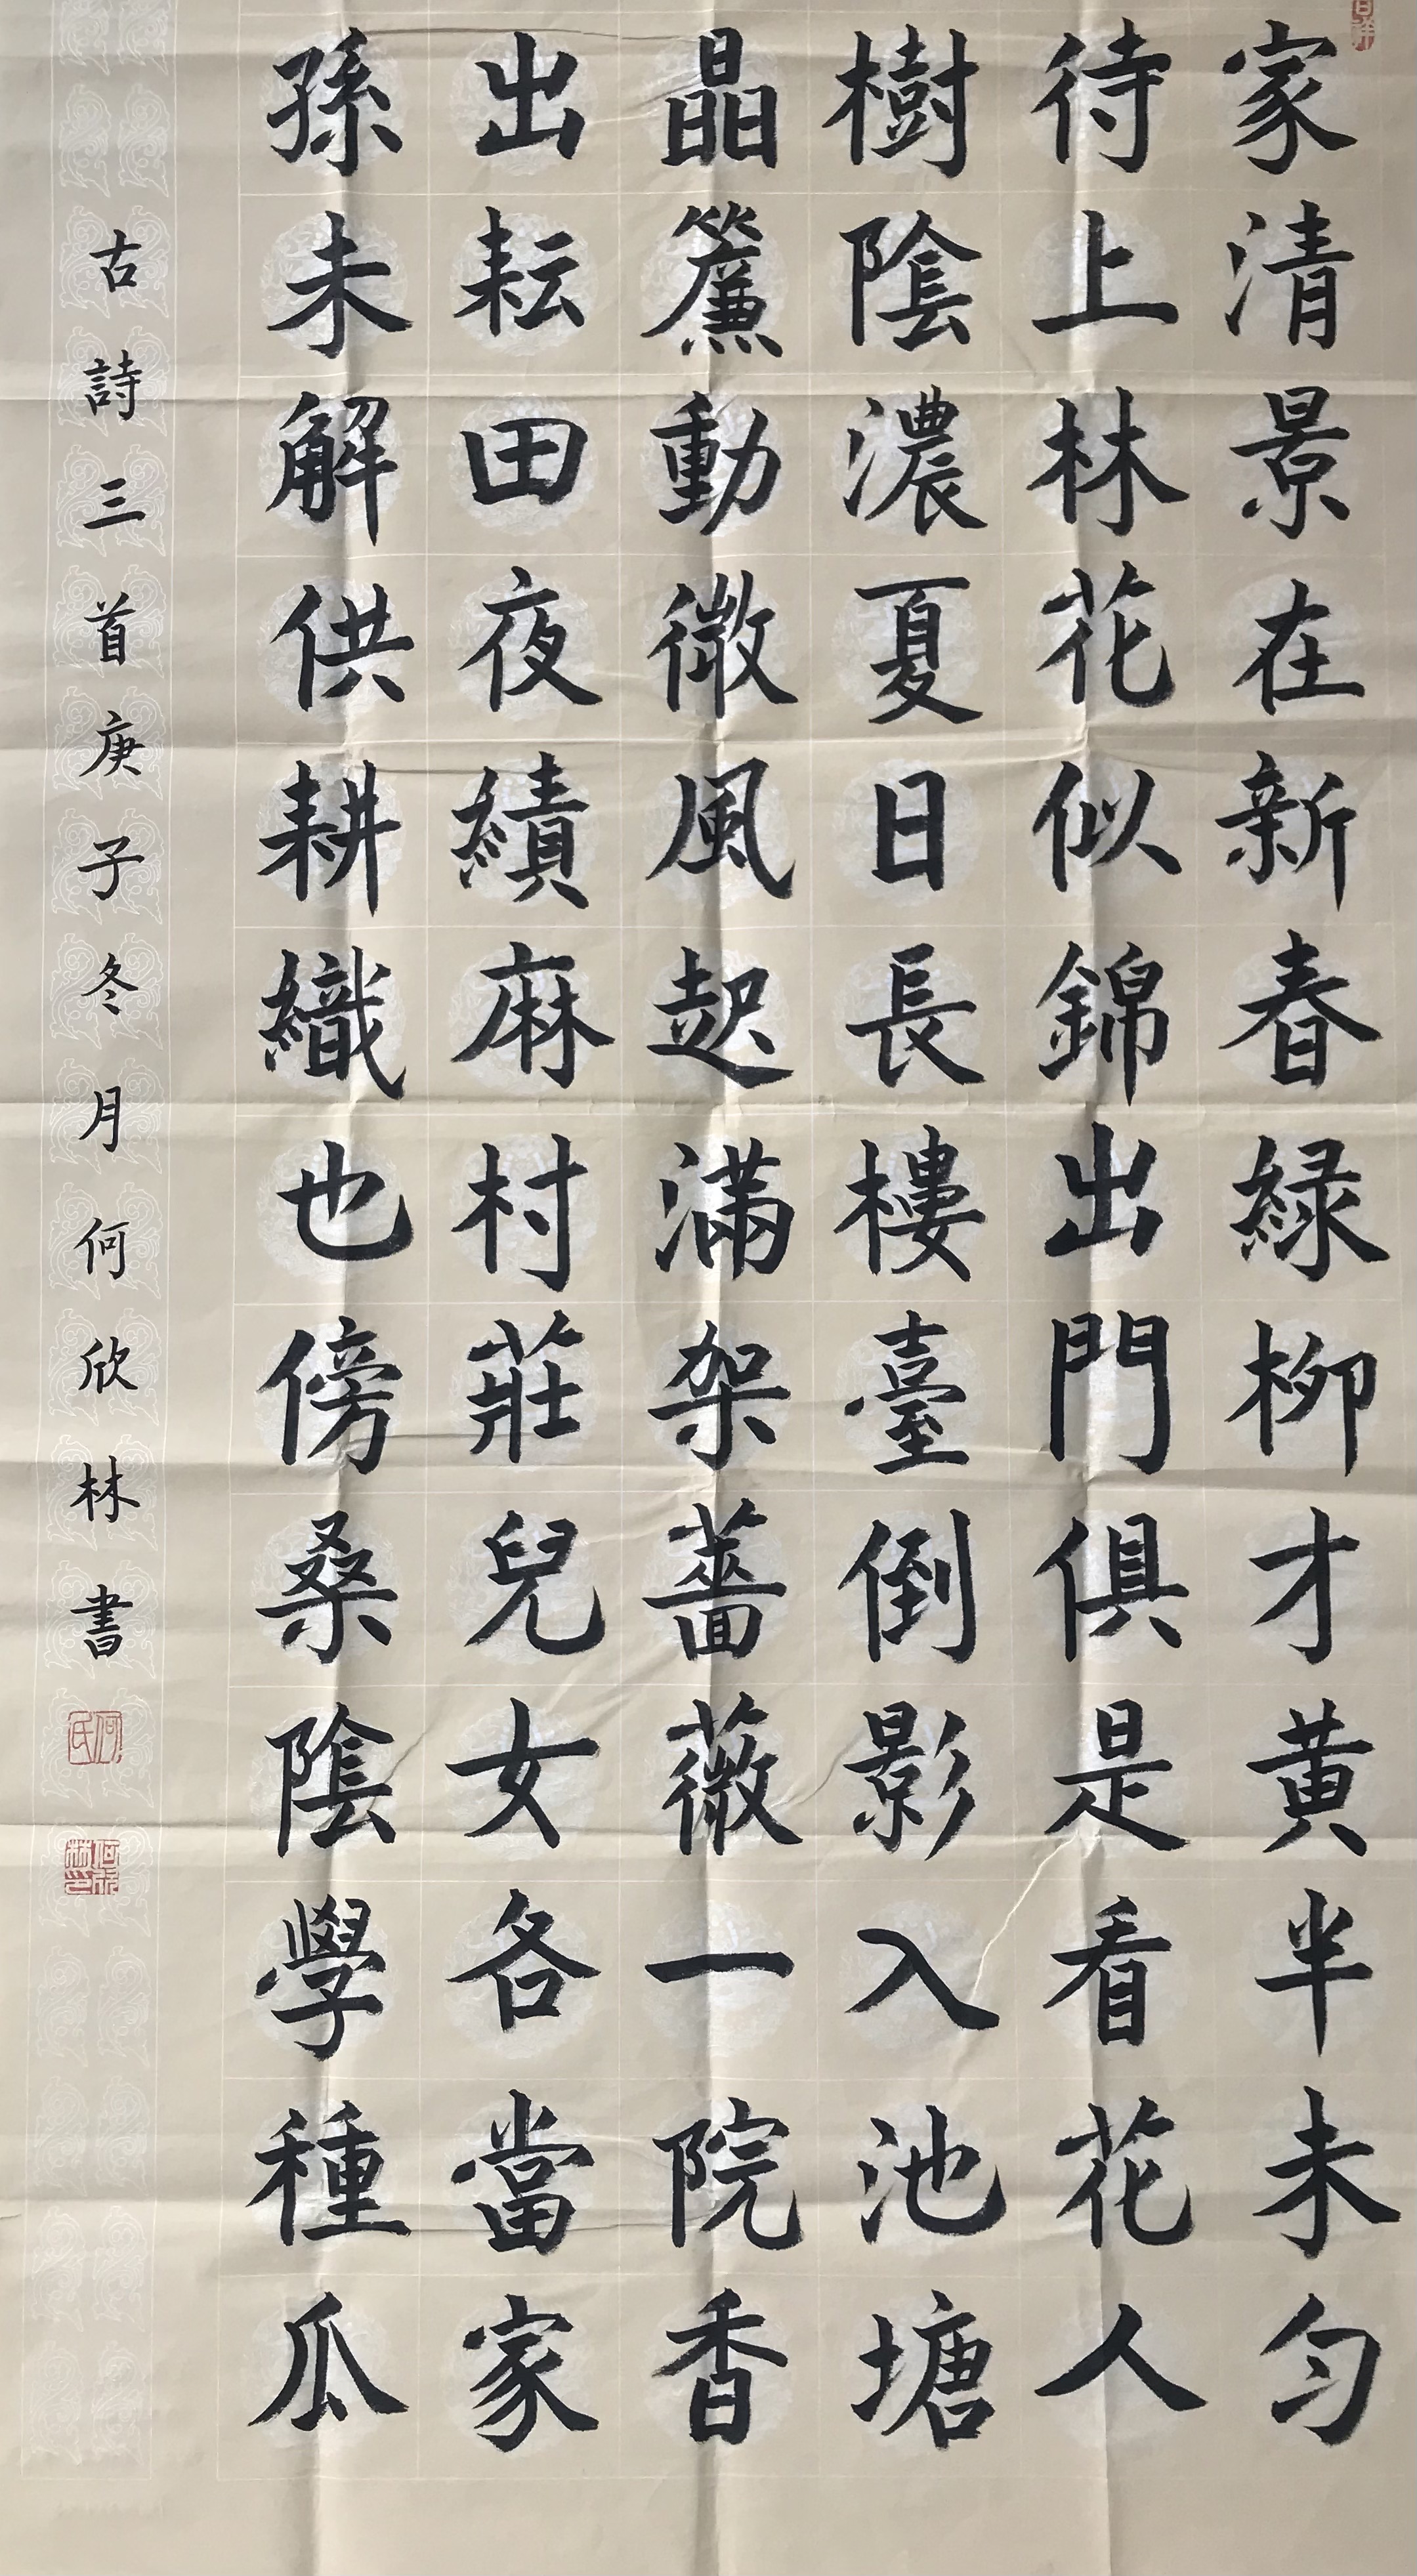 家清景在新春緑柳才黄半未匀
待上林花似錦出門俱是看花人
樹陰濃夏日長樓臺倒影入池塘
晶簾動微風起滿架薔薇一院香
出耘田夜績麻村莊兒女各當家
孫未解供耕織也傍桑陰學種瓜
古詩三首庚子冬月何欣林書
何氏